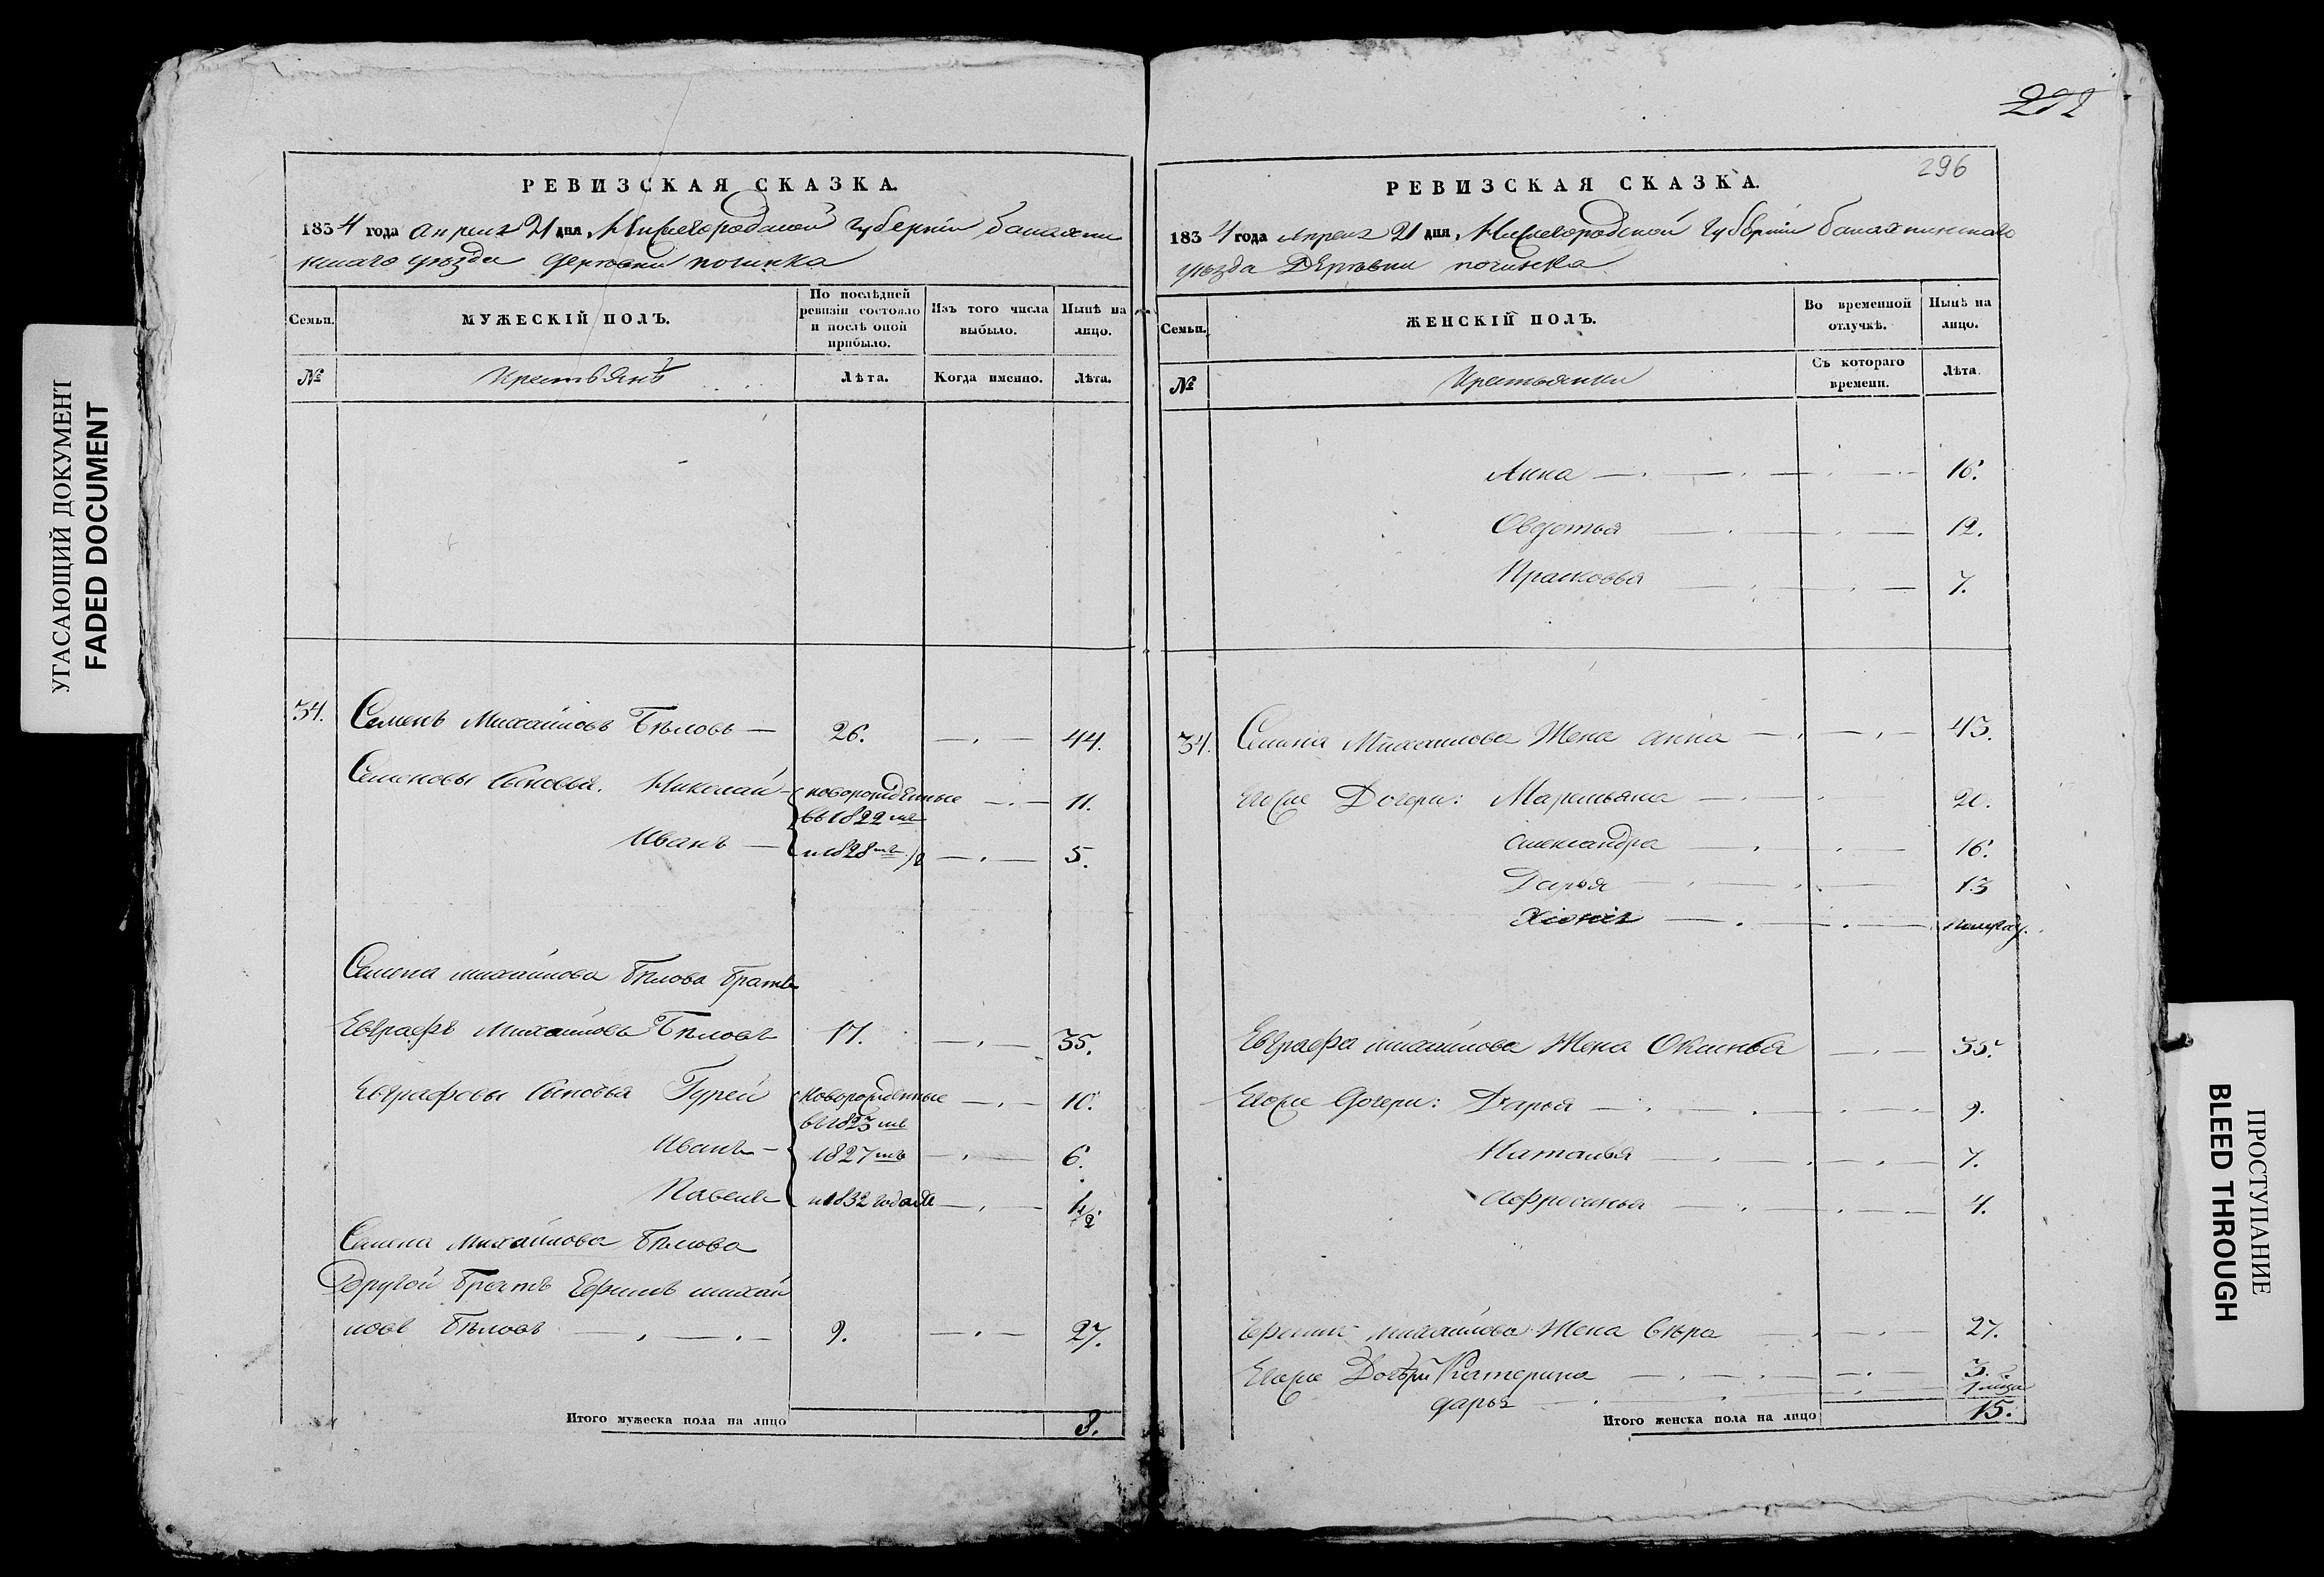 УГАСАЮЩИЙ ДОКУМЕНТ
FADED DOCUMENT
РЕВИЗСКАЯ СКАЗКА.
1834 года апреля 21 дня, Нижегородской губерніи балахни
нскаго уѣзда деревни починка
Семьи.
МУЖЕСКІЙ ПОЛЪ.
По послѣдней ревизіи состояло и послѣ оной прибыло.
Изъ того числа выбыло.
Нынѣ на лицо.
№
Крестьянъ
Лѣта.
Когда именно.
Лѣта.
34. Семенъ Михайловъ Бѣловъ — 26. 44.
Семеновы Сыновья. Николай новорожденные 11.
въ 1822 мъ
Иванъ — и 1828 мъ /2 5.
Семена михайлова бѣлова братъ
Евграфъ Михайловъ Бѣловъ 17. 35.
Евграфовы Сыновья Гурей новорожденные 10.
въ 1823 мъ
Иванъ — 1827 мъ 6.
Павелъ и 1832 годахъ 1 1/2
Семена Михайлова бѣлова
Другой братъ Ефимъ михай
ловъ бѣловъ 9. 27.
Итого мужеска пола на лицо 8.
296
РЕВИЗСКАЯ СКАЗКА.
1834 года Апреля 21 дня, Нижегородской губерніи балахнинскаго
уѣзда Деревни починка
Семьи.
ЖЕНСКІЙ ПОЛЪ.
Во временной отлучкѣ.
Нынѣ на лицо.
№
Крестьянки
Съ котораго времени.
Лѣта.
Анна 16.
Овдотья 12.
Прасковья 7.
34. Семена Михаилова Жена анна 43.
Его же Дочери: Маремьяна 20.
Александра 16.
Дарья 13
Хіонія полугоду.
Евграфа михайлова Жена Оксинья 35.
Его же дочери: Дарья 9.
Наталья 7.
Афросинья 4.
Ефима михайлова Жена Вѣра 27.
Его же Дочери Катерина 3.
дарья 1 мѣца
Итого женска пола на лицо 15.
ПРОСТУПАНИЕ
BLEED THROUGH